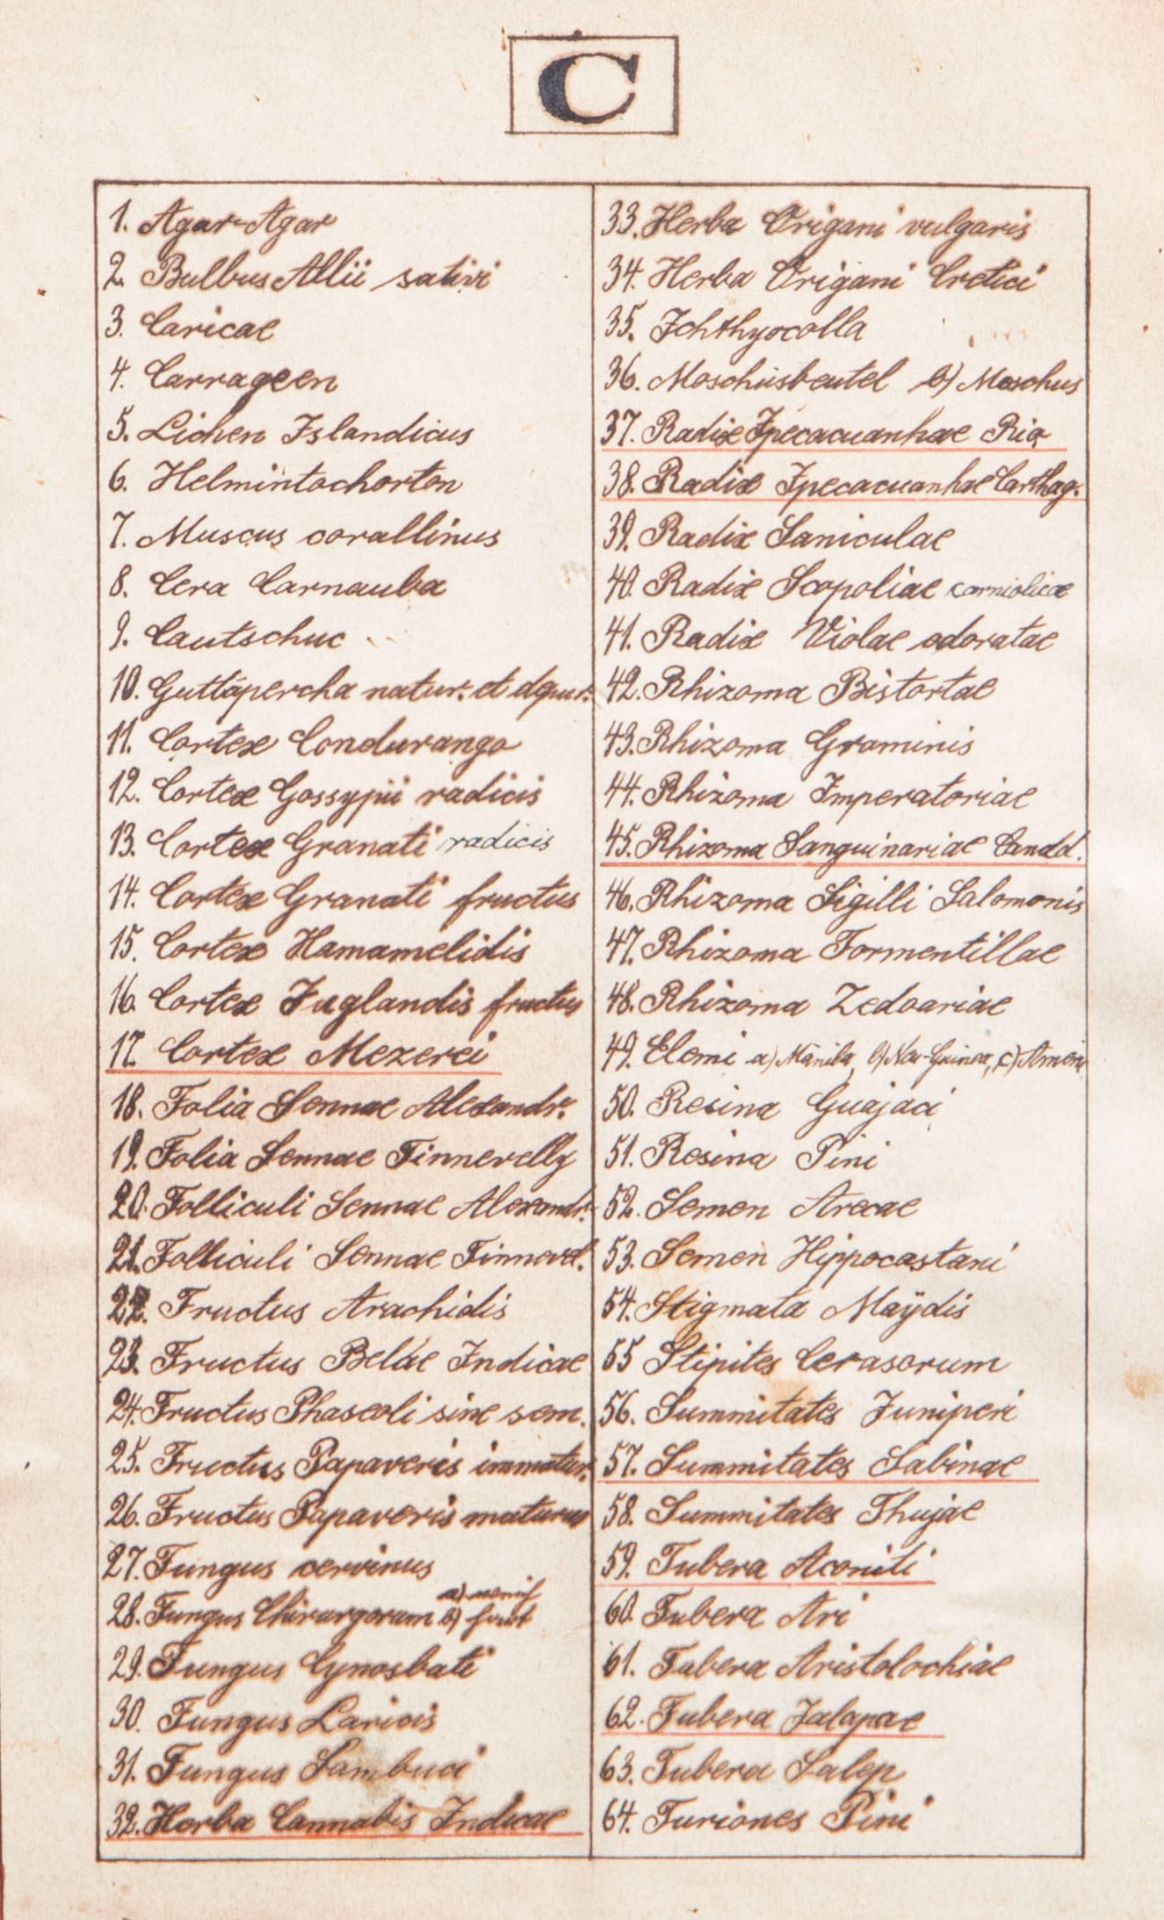 C
1. Agar-Agar
2. Bulbus Allii sativi
3. Caricae
4. Carrageen
5. Lichen Islandicus
6. Helmintochorton
7. Muscus corallinus
8. Cera Carnauba
9. Cautschuc
10. Guttapercha natur. et depur.
11. Cortex Condurango
12. Cortex Gossypii radicis
13. Cortex Granati radicis
14. Cortex Granati fructus
15. Cortex Hamamelidis
16. Cortex Juglandis fructus
17. Cortex Mezerei
18. Folia Sennae Alexandr.
19. Folia Sennae Tinnevelly
20. Folliculi Sennae Alexandr.
21. Folliculi Sennae Tinnevel.
22. Fructus Arachidis
23. Fructus Belae Indicae
24. Fructus Phaseoli sine sem.
25. Fructus Papaveris immatur.
26. Fructus Papaveris maturus
27. Fungus cervinus
28. Fungus Chirurgorum a) b)
29. Fungus Cynosbati
30. Fungus Laricis
31. Fungus Sambuci
32. Herba Cannabis Indicae
33. Herba Origani vulgaris
34. Herba Origani Cretici
35. Ichthyocolla
36. Moschusbeutel b) Moschus
37. Radix Ipecacuanhae Rio
38. Radix Ipecacuanhae Carthag.
39. Radix Saniculae
40. Radix Scopoliae carniolicae
41. Radix Violae odoratae
42. Rhizoma Bistortae
43. Rhizoma Graminis
44. Rhizoma Imperatoriae
45. Rhizoma Sanguinariae Canad.
46. Rhizoma Sigilli Salomonis
47. Rhizoma Tormentillae
48. Rhizoma Zedoariae
49. Elemi a) Manila, b) New-Guinea, c)
50. Resina Guajaci
51. Resina Pini
52. Semen Arecae
53. Semen Hippocastani
54. Stigmata Maÿdis
55 Stipites Cerasorum
56. Summitates Juniperi
57. Summitates Sabinae
58. Summitates Thujae
59. Tubera Aconiti
60. Tubera Ari
61. Tubera Aristolochiae
62. Tubera Jalapae
63. Tubera Salep
64. Turiones Pini